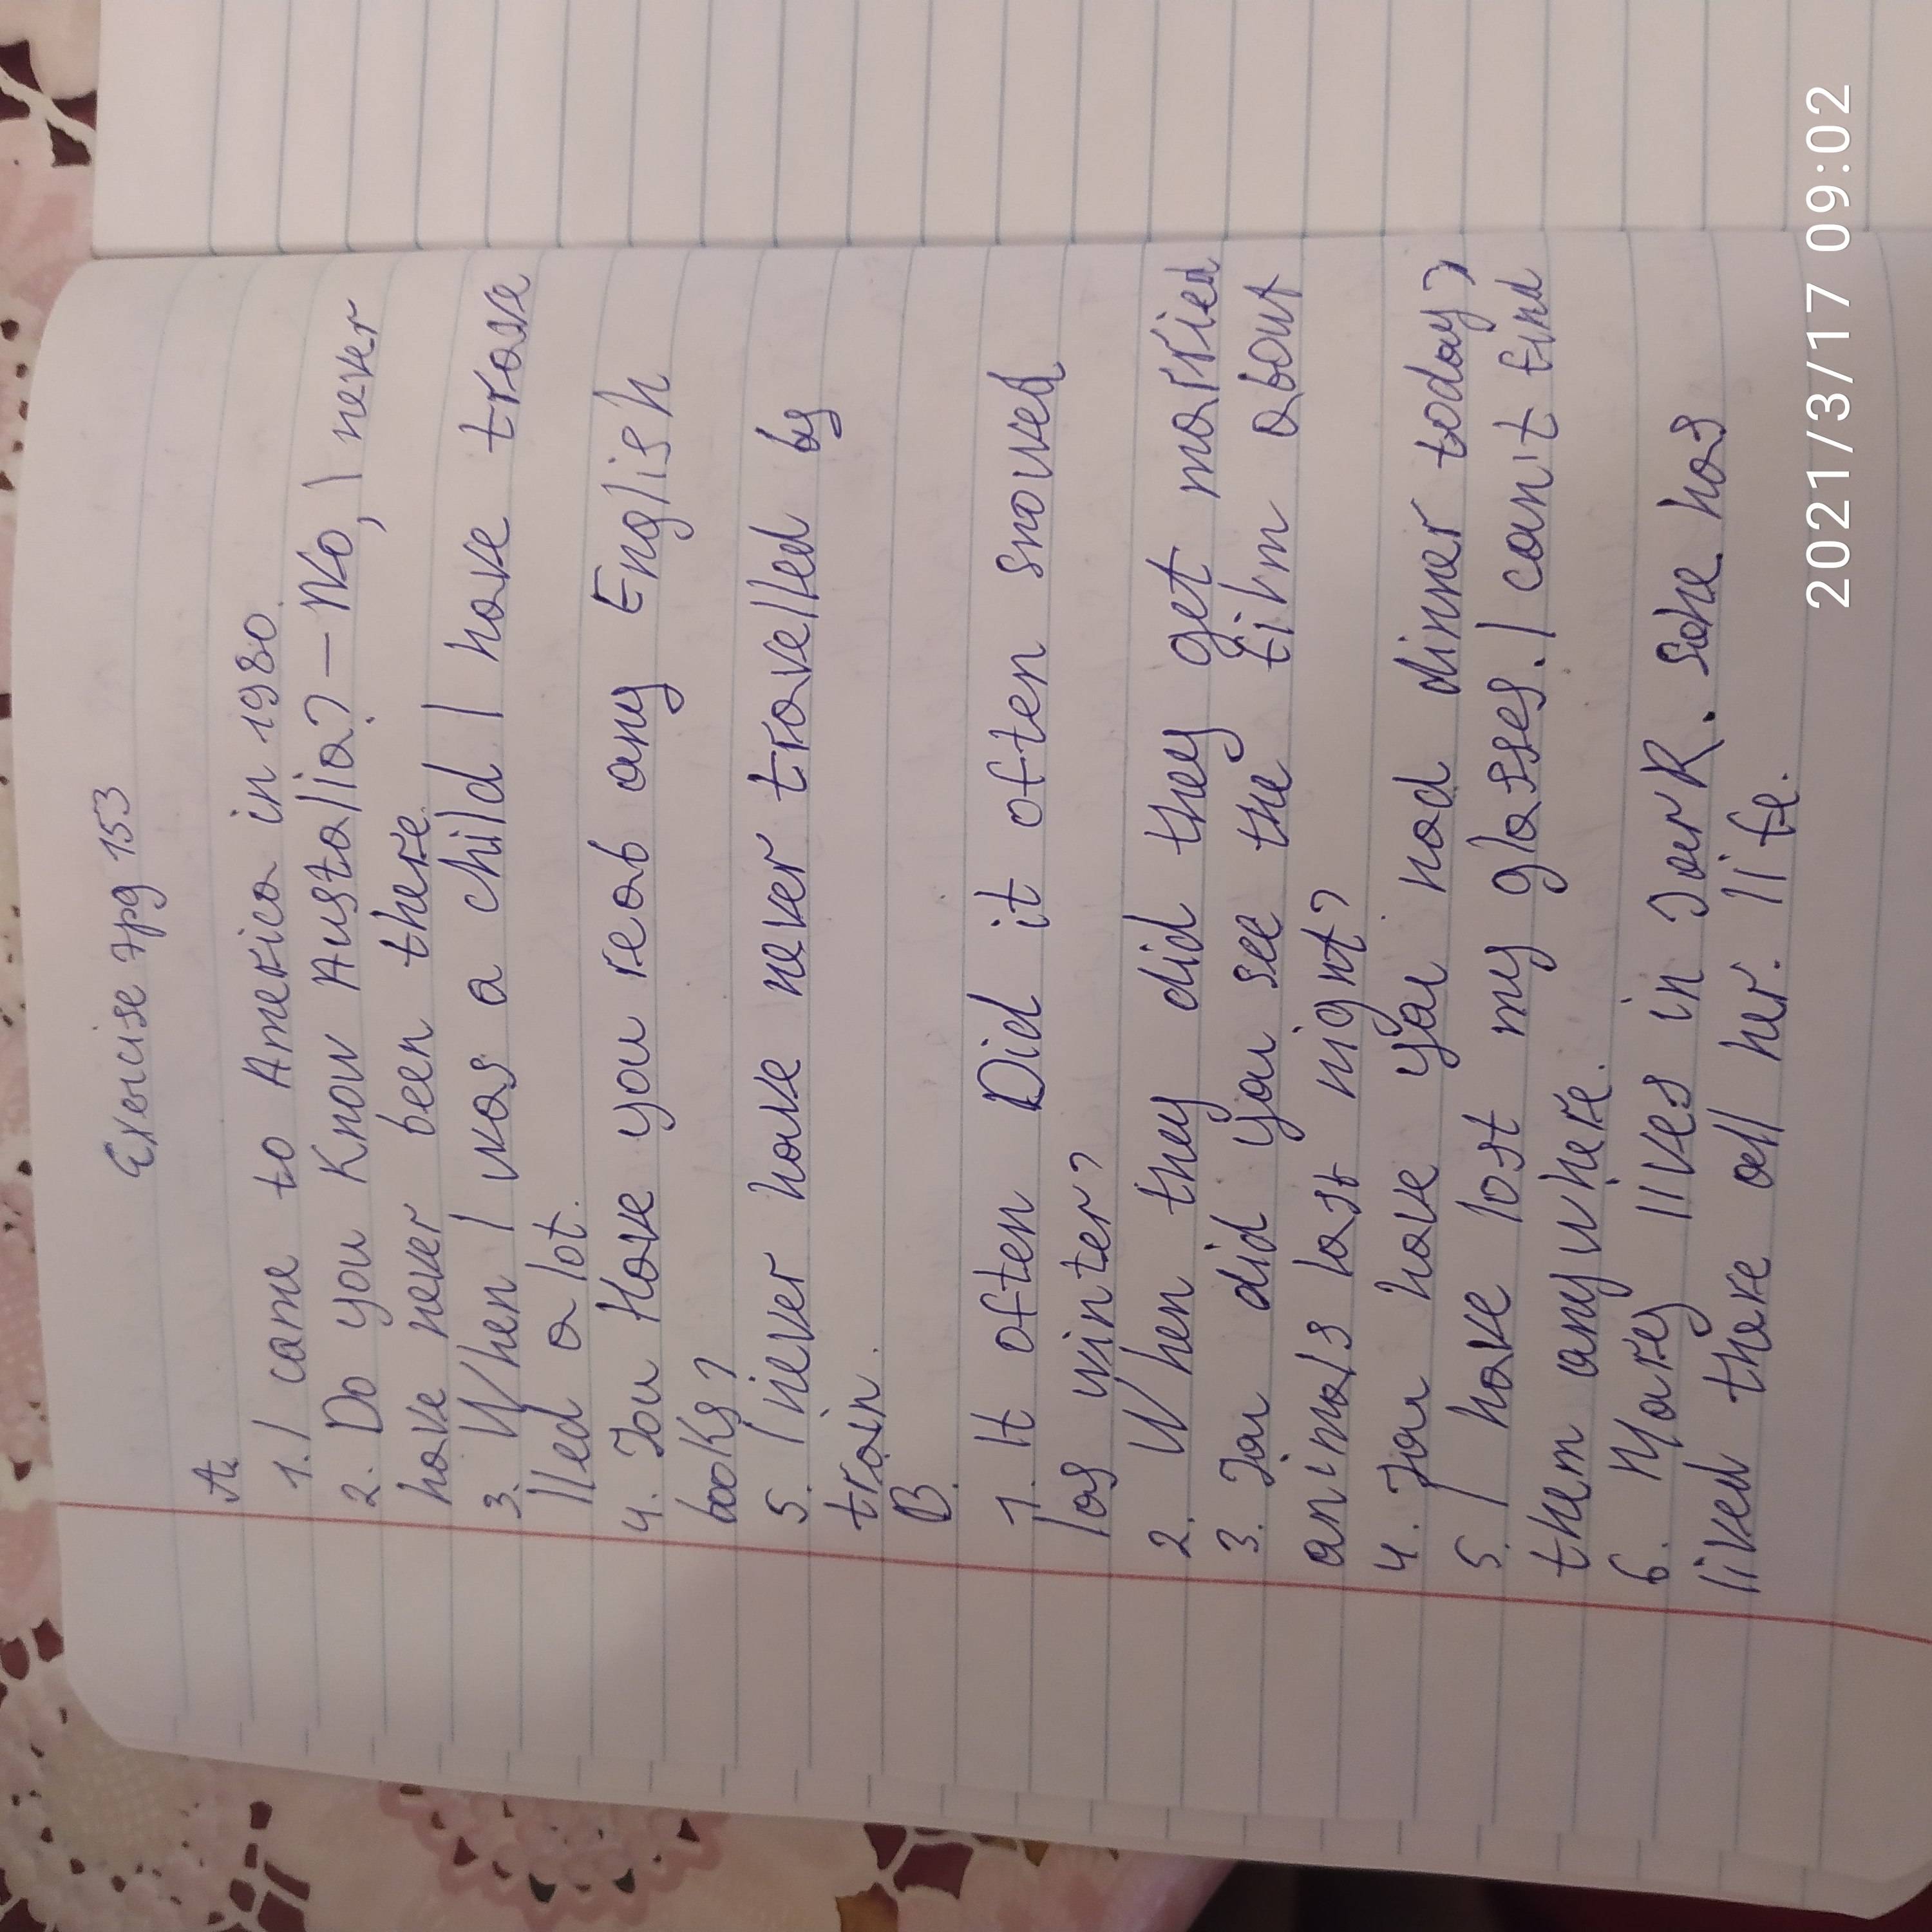 Exercise 7 pg 153
A.
1. I came to America in 1980.
2. Do you know Austalia? – No, I never
have never been there.
3. When I was a child I have trave
lled a lot.
4. You Have you read any English
books?
5. I never have never travelled by
train.
B.
1. It often Did it often snowed
las winter?
2. When they did they get married
3. You did you see the film about
animals last night?
4. You have you had dinner today?
5. I have lost my glasses. I can't find
them anywhere.
6. Marey lives in R. has
lived there all her life.
2021/3/17 09:02